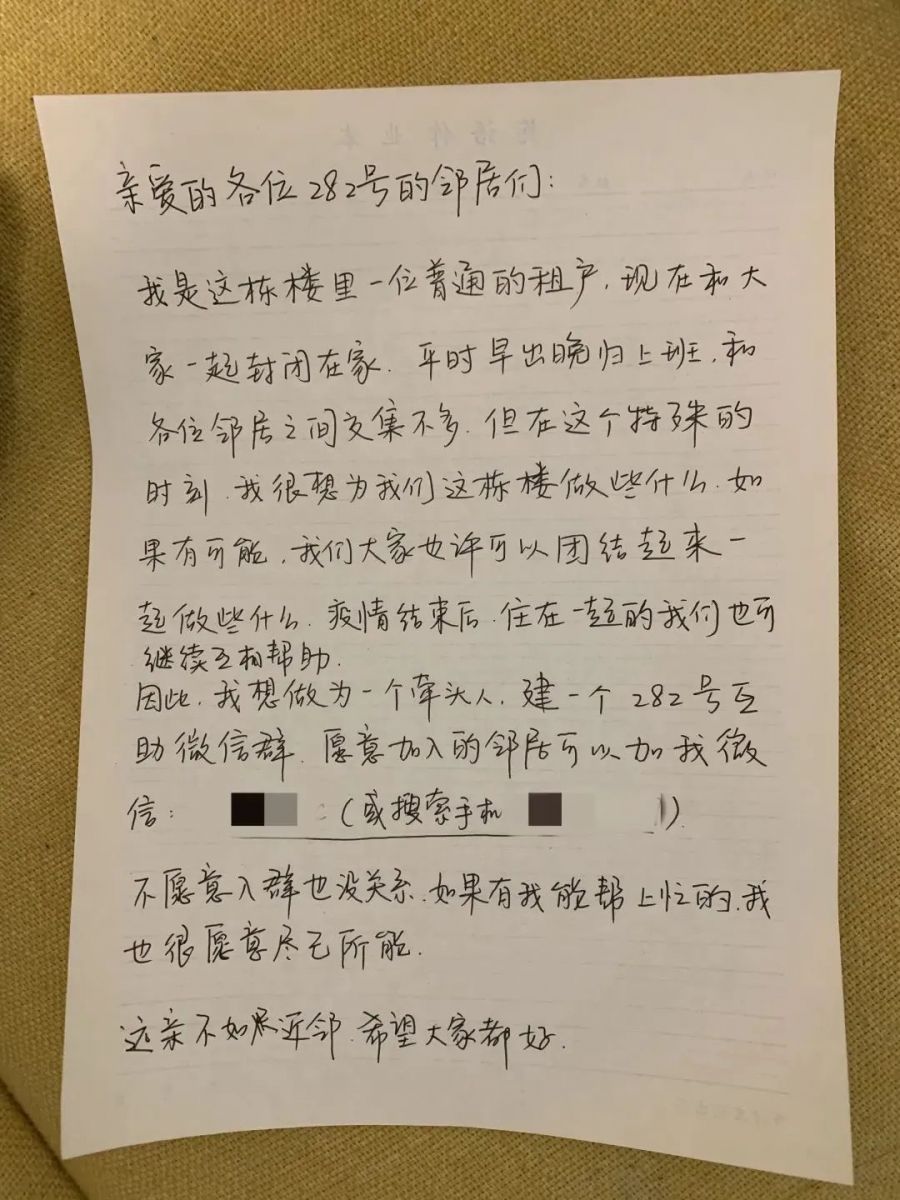 亲爱的各位282号的邻居们:
我是这栋楼里一位普通的租户,现在和大
家一起封闭在家.平时早出晚归上班,和
各位邻居之间交集不多.但在这个特殊的
时刻.我很想为我们这栋楼做些什么.如
果有可能,我们大家也许可以团结起来一
起做些什么.疫情结束后.住在一起的我们也可
继续互相帮助.
因此,我想做为一个牵头人,建一个282号互
助微信群.愿意加入的邻居可以加我微
信: (或搜索手机 ).
不愿意入群也没关系.如果有我能帮上忙的,我
也很愿意尽己所能.
远亲不如 近邻.希望大家都好.